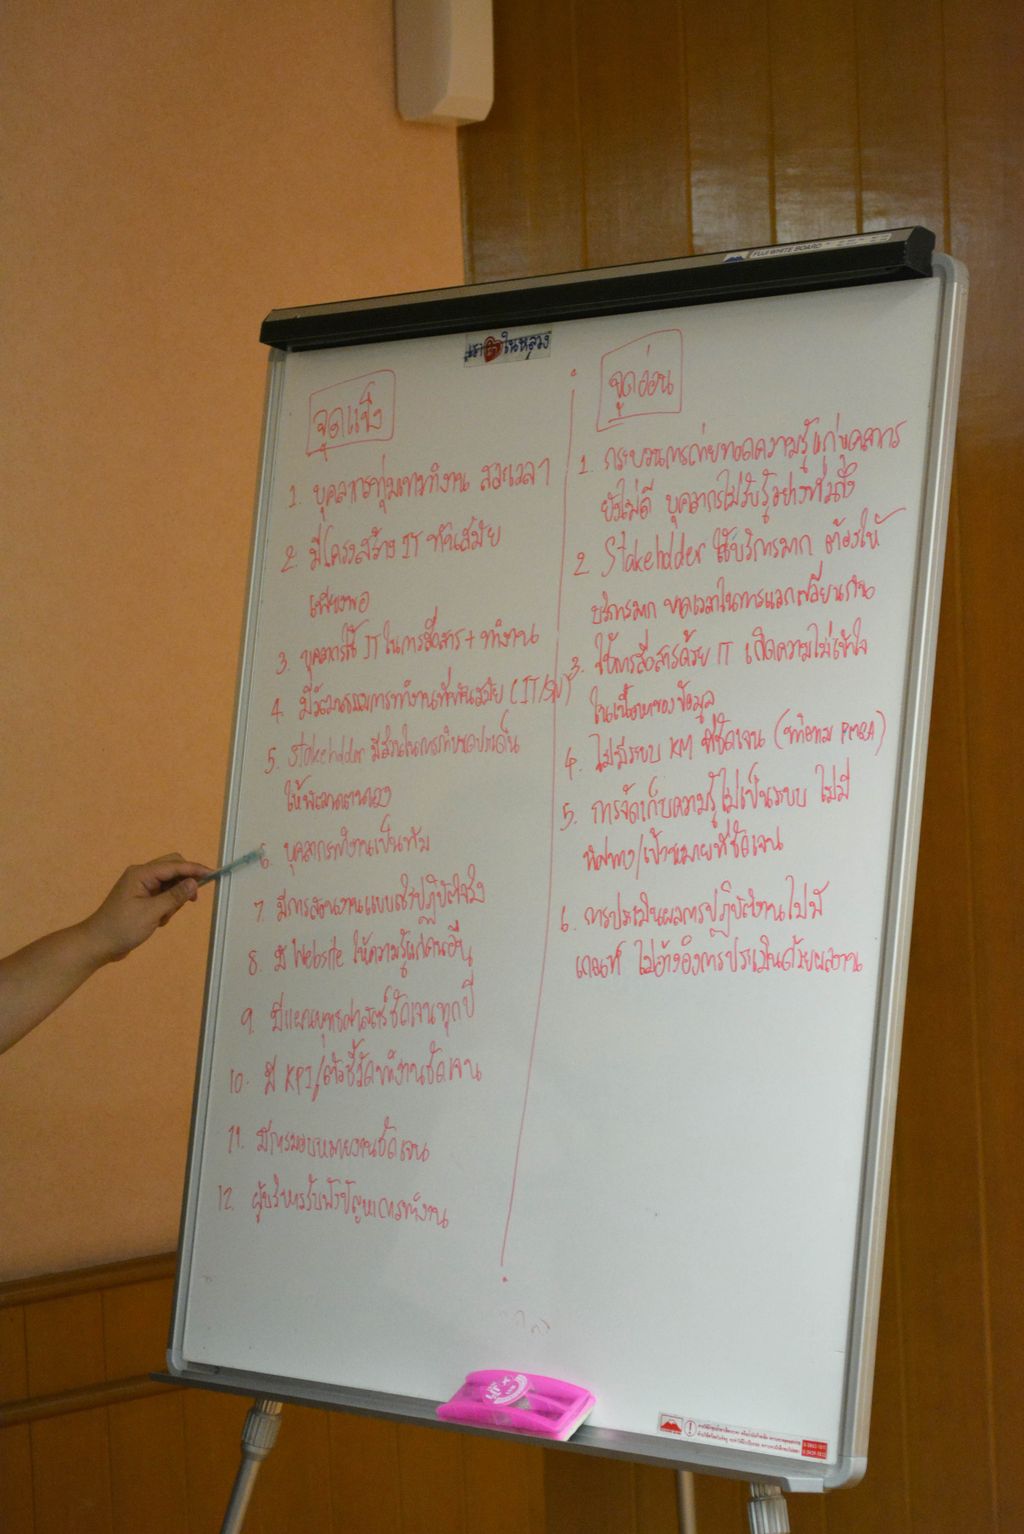 FUJI WHITE BOARD
ในหลวง
จุดแข็ง
1. บุคลากรทุ่มเททำงาน สละเวลา
2. มีโครงสร้าง IT ทันสมัย
เพียงพอ
3. บุคลากรใช้ IT ในการสื่อสาร + ทำงาน
4. มีวัฒนธรรมการทำงานที่ทันสมัย (IT/
5. Stakeholder มีส่วนในการกำหนดประเด็น
ให้
6. บุคลากรทำงานเป็นทีม
7. มีการสอนงานแบบลงปฏิบัติจริง
8. มี Website ให้ความรู้แก่คนอื่น
9. มีแผนยุทธศาสตร์ชัดเจนทุกปี
10. มี KPI/ตัวชี้วัดทำงานชัดเจน
11. มีการมอบหมายงานชัดเจน
12. ผู้บริหารรับฟังปัญหาการทำงาน
จุดอ่อน
1. กระบวนการถ่ายทอดความรู้แก่บุคลากร
ยังไม่ดี บุคลากรไม่รับรู้อย่างทั่วถึง
2. Stakeholder ใช้บริการมาก ต้องให้
บริการมาก ขาดเวลาในการแลกเปลี่ยนกัน
3. ใช้การสื่อสารด้วย IT เกิดความไม่เข้าใจ
ในเนื้อหาของข้อมูล
4. ไม่มีระบบ KM ที่ชัดเจน (ทำตาม PMQA)
5. การจัดเก็บความรู้ไม่เป็นระบบ ไม่มี
ทิศทาง/เป้าหมายที่ชัดเจน
6. การประเมินผลการปฏิบัติงานไม่มี
เกณฑ์ ไม่อ้างอิงการประเมินด้วยผลงาน